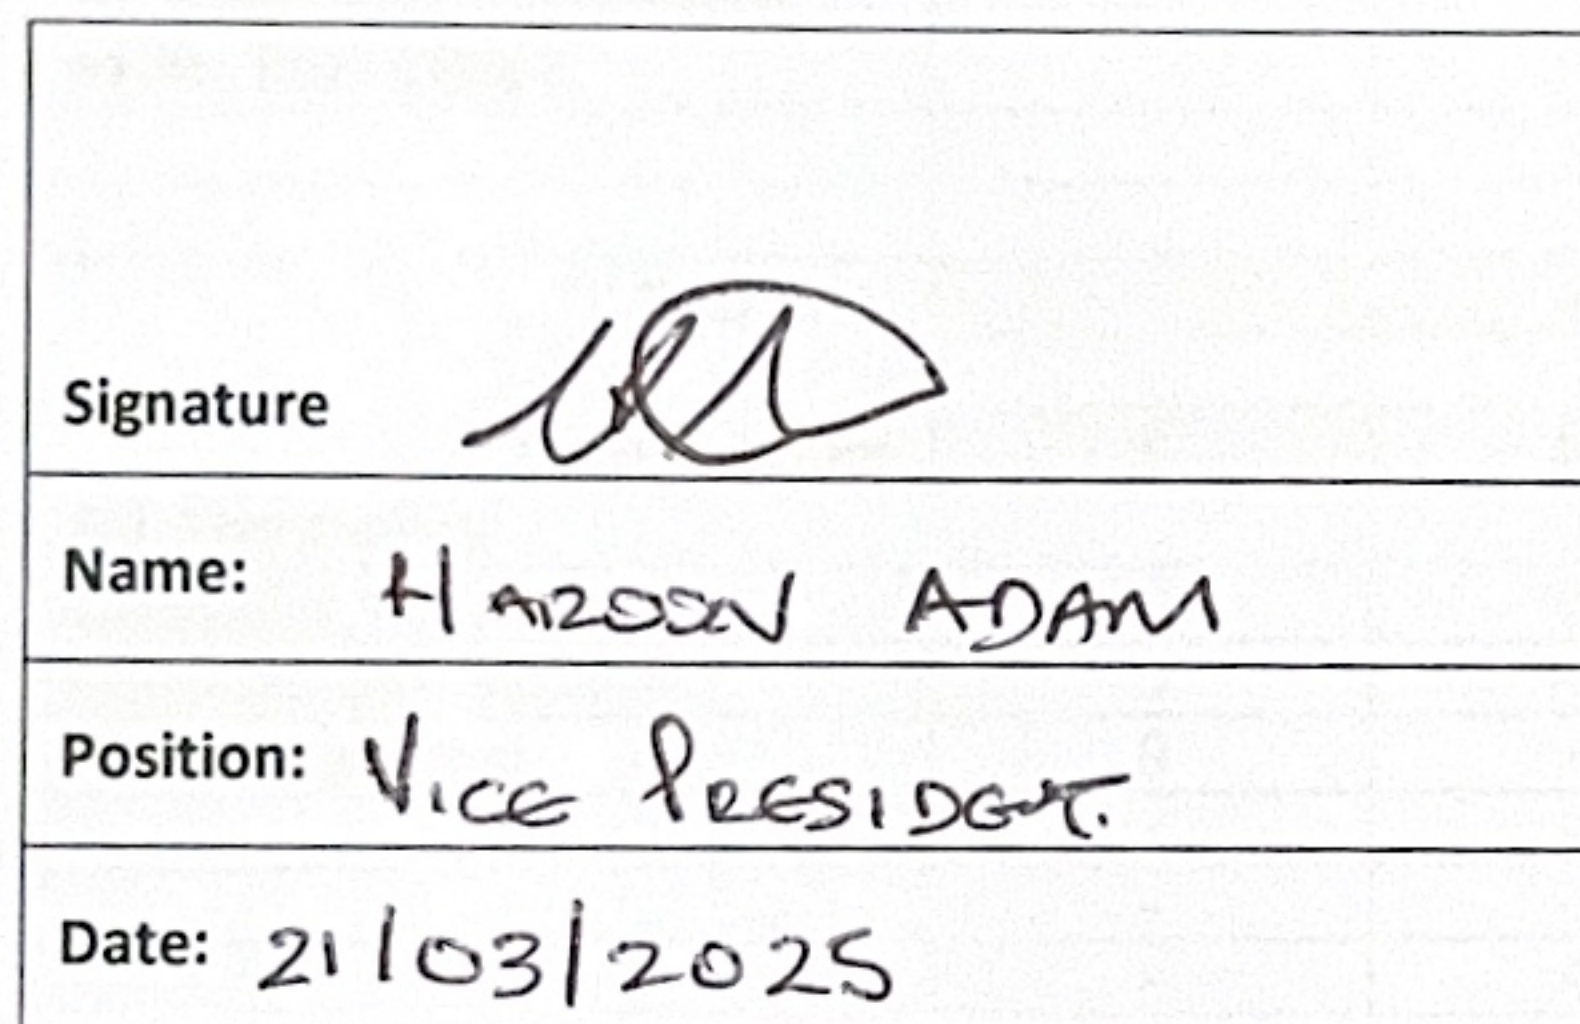 Signature
Name: HAROON ADAM
Position: VICE PRESIDENT.
Date: 21/03/2025